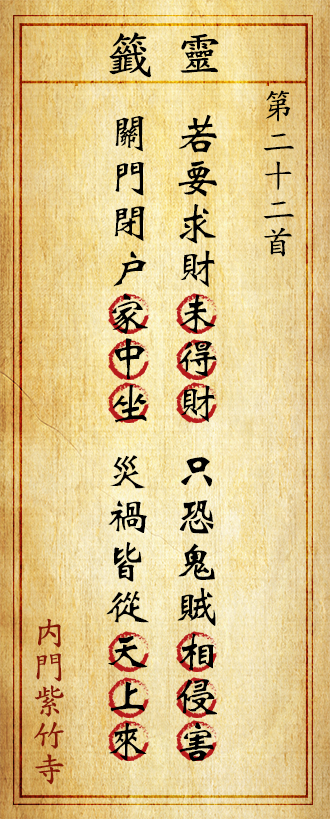 靈籤
第二十二首
若要求財未得財
只恐鬼賊相侵害
關門閉户家中坐
災禍皆從天上來
内門紫竹寺